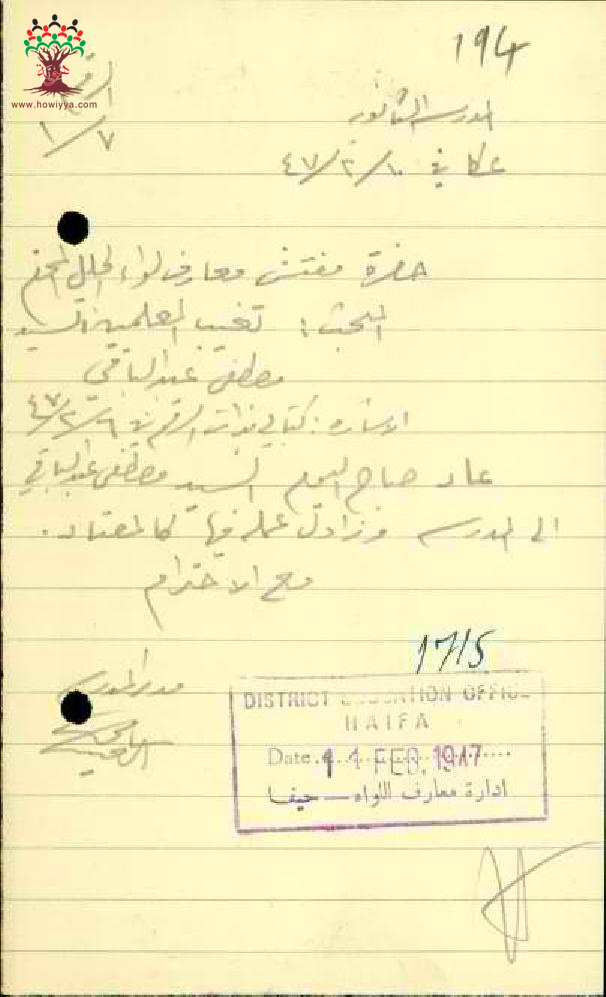 194
www.howiyya.com
الرقم
٧/١
المدرسة الثانوية
عكا في ١٠/٢/٤٧
حضرة مفتش معارف لواء الجليل المحترم
المبحث : تغيب المعلمين السيد
مصطفى عبد الباقي
الاشارة : كتابي ذات الرقم في ٦/٢/٤٧
عاد صباح اليوم السيد مصطفى عبد الباقي
الى المدرسة وزاول عمله فيها كالمعتاد .
مع الاحترام
17/5
مدير المدرسة
DISTRICT EDUCATION OFFICE
HAIFA
Date 14 FEB. 1947
ادارة معارف اللواء — حيفا